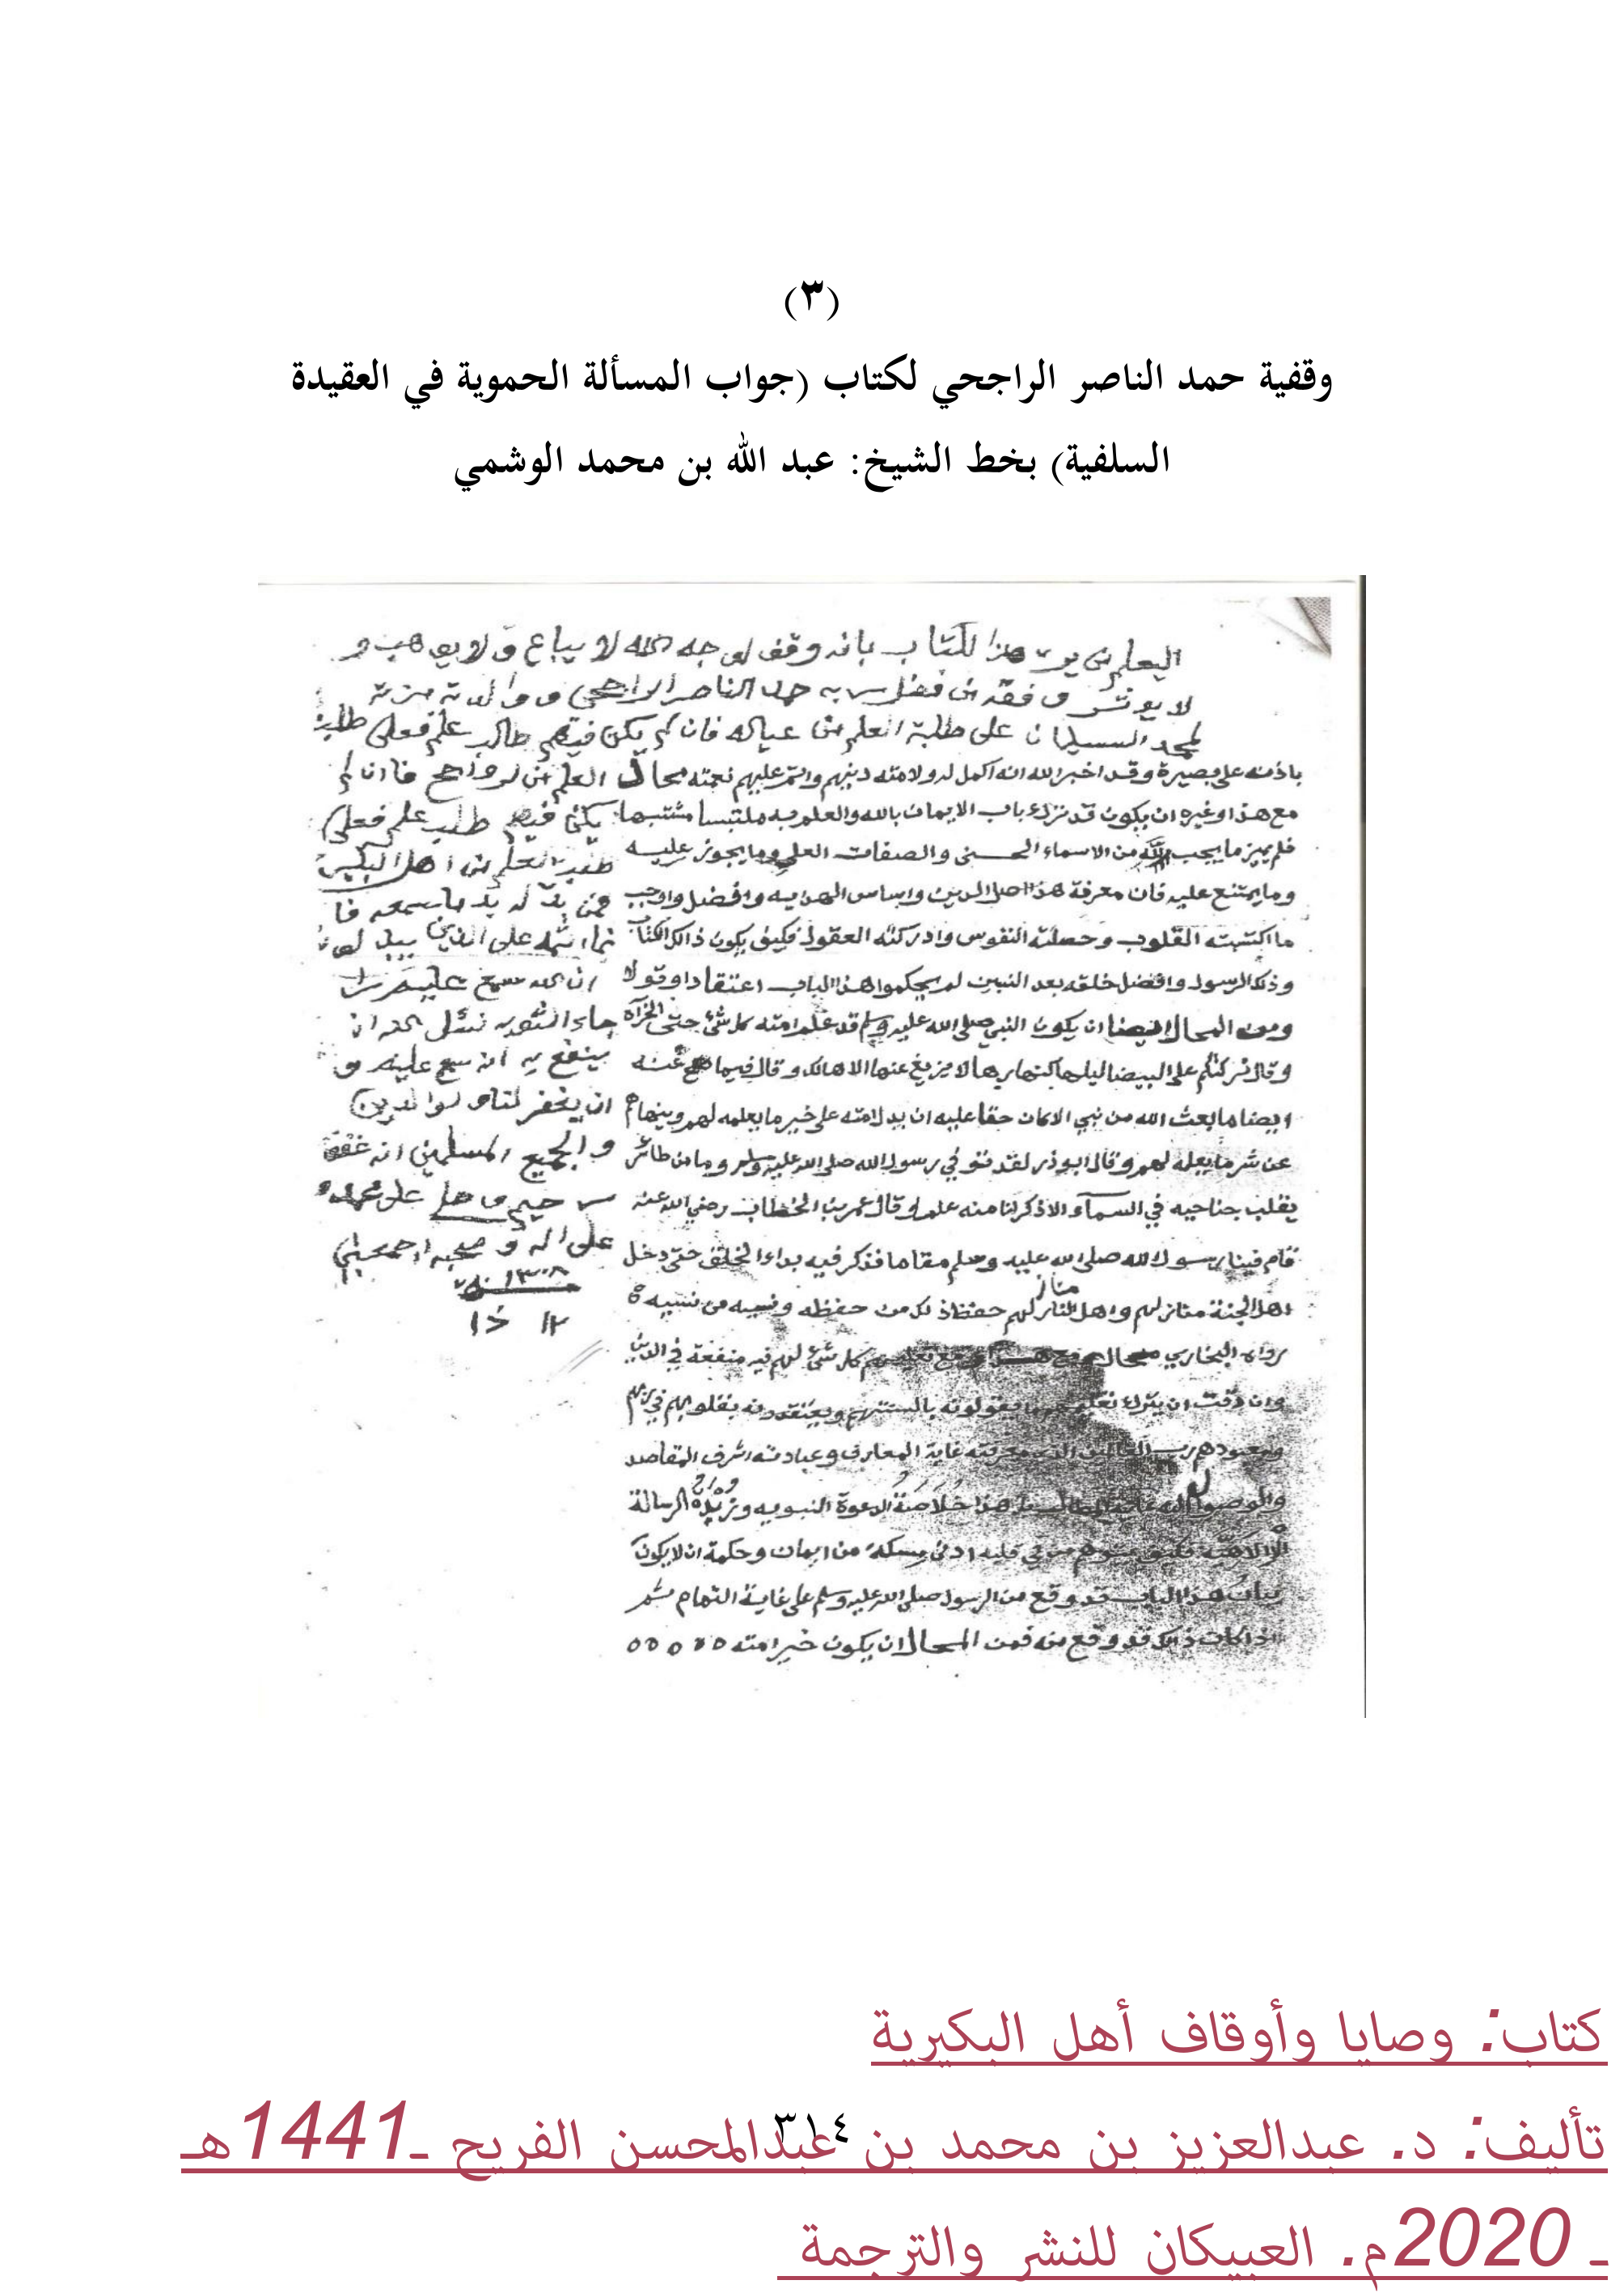 (٣)
وقفية حمد الناصر الراجحي لكتاب (جواب المسألة الحموية في العقيدة
السلفية) بخط الشيخ: عبد الله بن محمد الوشمي
اليعلم من يراه هذا الكتاب بانه وقف لوجه الله لا يباع ولا يوهب و
لا يورث وقفه من فضل ربه حمد الناصر الراجحي و والدته مزنة
لمحمد السليمان على طلبة العلم من عياله فان لم يكن فيهم طالب علم فعلى طلبة
العلم من الرواجح فاان لم
يكن فيهم طلب علم فعلى
طلبة العلم من اهل البكيريه
فمن بدله بعد ما سمعه فا
نما اثمه على الذين يبدلونه
ان الله سميع عليم
جاء الثوب نسئل الله ان
ينفع به انه سميع عليم و
ان يغفر لنا ولوالدين
والجميع المسلمين انه غفور
رحيم وصلى على محمد و
على اله وصحبه اجمعين
١٣٠٨
١٢ ذ ا
باذنه على بصيرة وقد اخبر الله انه اكمل له ولامته دينهم واتم عليهم نعمته محال
مع هذا وغيره ان يكون قد ترك باب الايمان بالله والعلم به ملتبسا مشتبها
فلم يميز ما يجب لله من الاسماء الحسنى والصفات العلى وما يجوز عليه
وما يمتنع عليه فان معرفة هذا اصل الدين واساس الهدايه وافضل واوجب
ما اكتسبته القلوب وحصلته النفوس وادركته العقول فكيف يكون ذالك الكتاب
وذلك الرسول وافضل خلقه بعد النبيين لم يحكموا هذا الباب اعتقادا وقولا
ومن المحال ايضا ان يكون النبي صلى الله عليه وسلم قد علم امته كل شئ حتى الخرآة
وقال تركتكم على البيضا ليلها كنهارها لا يزيغ عنها الا هالك وقال فيما صح عنه
ايضا ما بعث الله من نبي الا كان حقا عليه ان يدل امته على خير ما يعلمه لهم وينهاهم
عن شر ما يعلمه لهم وقال ابو ذر لقد توفي رسول الله صلى الله عليه وسلم وما من طائر
يقلب جناحيه في السمآء الا ذكر لنا منه علما وقال عمر بن الخطاب رضي الله عنه
قام فينا رسول الله صلى الله عليه وسلم مقاما فذكر فيه بداء الخلق حتى دخل
اهل الجنة منازلهم واهل النار منازلهم حفظ ذلك من حفظه ونسيه من نسيه
رواه البخاري محال مع هذا مع تعليمهم كل شئ لهم فيه منفعة في الدين
وان دقت ان يترك تعليمهم ما يقولونه بالسنتهم ويعتقدونه بقلوبهم في ربهم
ومعبودهم رب العالمين الذي معرفته غاية المعارف وعبادته اشرف المقاصد
والوصول اليه غاية المطالب بل هذا خلاصة الدعوة النبويه وزبدة الرسالة
الالاهية فكيف يتوهم من في قلبه ادنى مسكة من ايمان وحكمة ان لا يكون
بيان هذا الباب قد وقع من الرسول صلى الله عليه وسلم على غاية التمام ثم
اذا كان ذالك قد وقع منه فمن المحال ان يكون خير امته ه ه ه ه ه
٣١٤
كتاب: وصايا وأوقاف أهل البكيرية
تأليف: د. عبدالعزيز بن محمد بن عبدالمحسن الفريح ـ1441هـ
ـ 2020م. العبيكان للنشر والترجمة